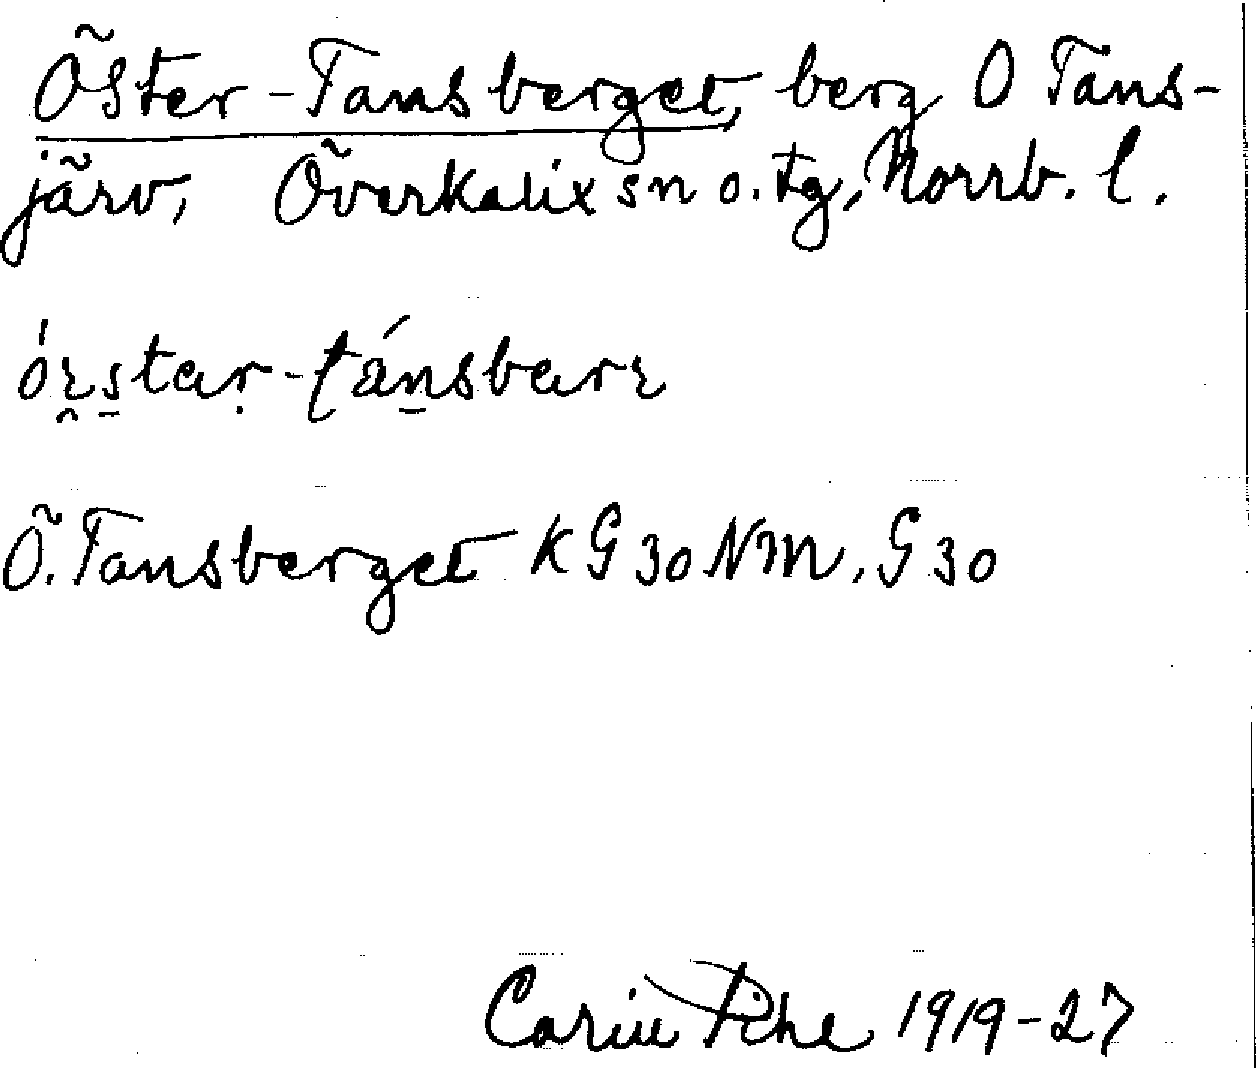 Öster-Tansberget, berg O Tans-
järv, Överkalix sn o. tg, Norrb. l.
Ö. Tansberget KG30NM, G30
Carin Pihl 1919-27